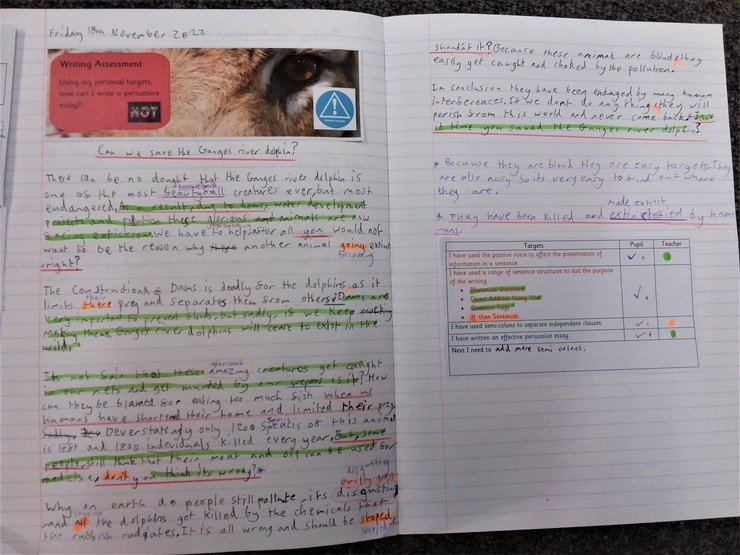 Friday 18th November 2022
Writing Assessment
Using my personal targets,
how can I write a persuasive
essay?
HOT
Can we save the Ganges river dolphin?
There can be no dought that the Ganges river dolphin is
beautiful
one of the most beautyfull creatures ever, but most
endangered. As a result, due to dams, water development
projects and polution these glorious and animals are now
facing extinction. We have to help after all you would not
want to be the reason why another animal going extinct
becoming
right?
The Construction of Dams is deadly for the dolphins as it
their
limits there prey and separates them from others. Dams are
very important to prevent floods, but sadly, if we keep making
making them Ganges river dolphins will cease to exist in the
wild.
glorious
It's not fair that these amazing creatures get caught
in our nets and get murded by our wepons is it? How
can they be blamed for eating too much fish when us
humans have shortend their home and limited their prey.
species
Deverstatendly only 1200 speacis of this animal
is left and 1800 individuals killed every year. But, some
people, still think that their meat and oil can be used for
medicine, don't you think its wrong?*
disgusting
evilly gray
Why on earth do people still pollute, its disgusting
and all the dolphins get killed by the chemicals that
the rubbish radpates. It is all wrong and should be stoped,
stopped
shouldn't it? Because these animals are blind, they
easily get caught and choked by the pollution.
In conclusion they have been endaged by many human
interferences. If we dont do anything, they will
perish from this world and never come back. Isn't
it time you saved the Ganges river dolphin?
* Because they are blend they are easy targets. They
are also noisy so its very easy to find out where
they are.
made extinct
* They have been killed and extinctesied by hum
ans.
Targets
Pupil
Teacher
I have used the passive voice to affect the presentation of
information in a sentence
I have used a range of sentence structures to suit the purpose
of the writing
Rhetorical Questions
Direct Address Using 'You'
Question Tags
If, then Sentences
I have used semi-colons to separate independent clauses.
I have written an effective persuasive essay.
Next I need to add more semi colons.